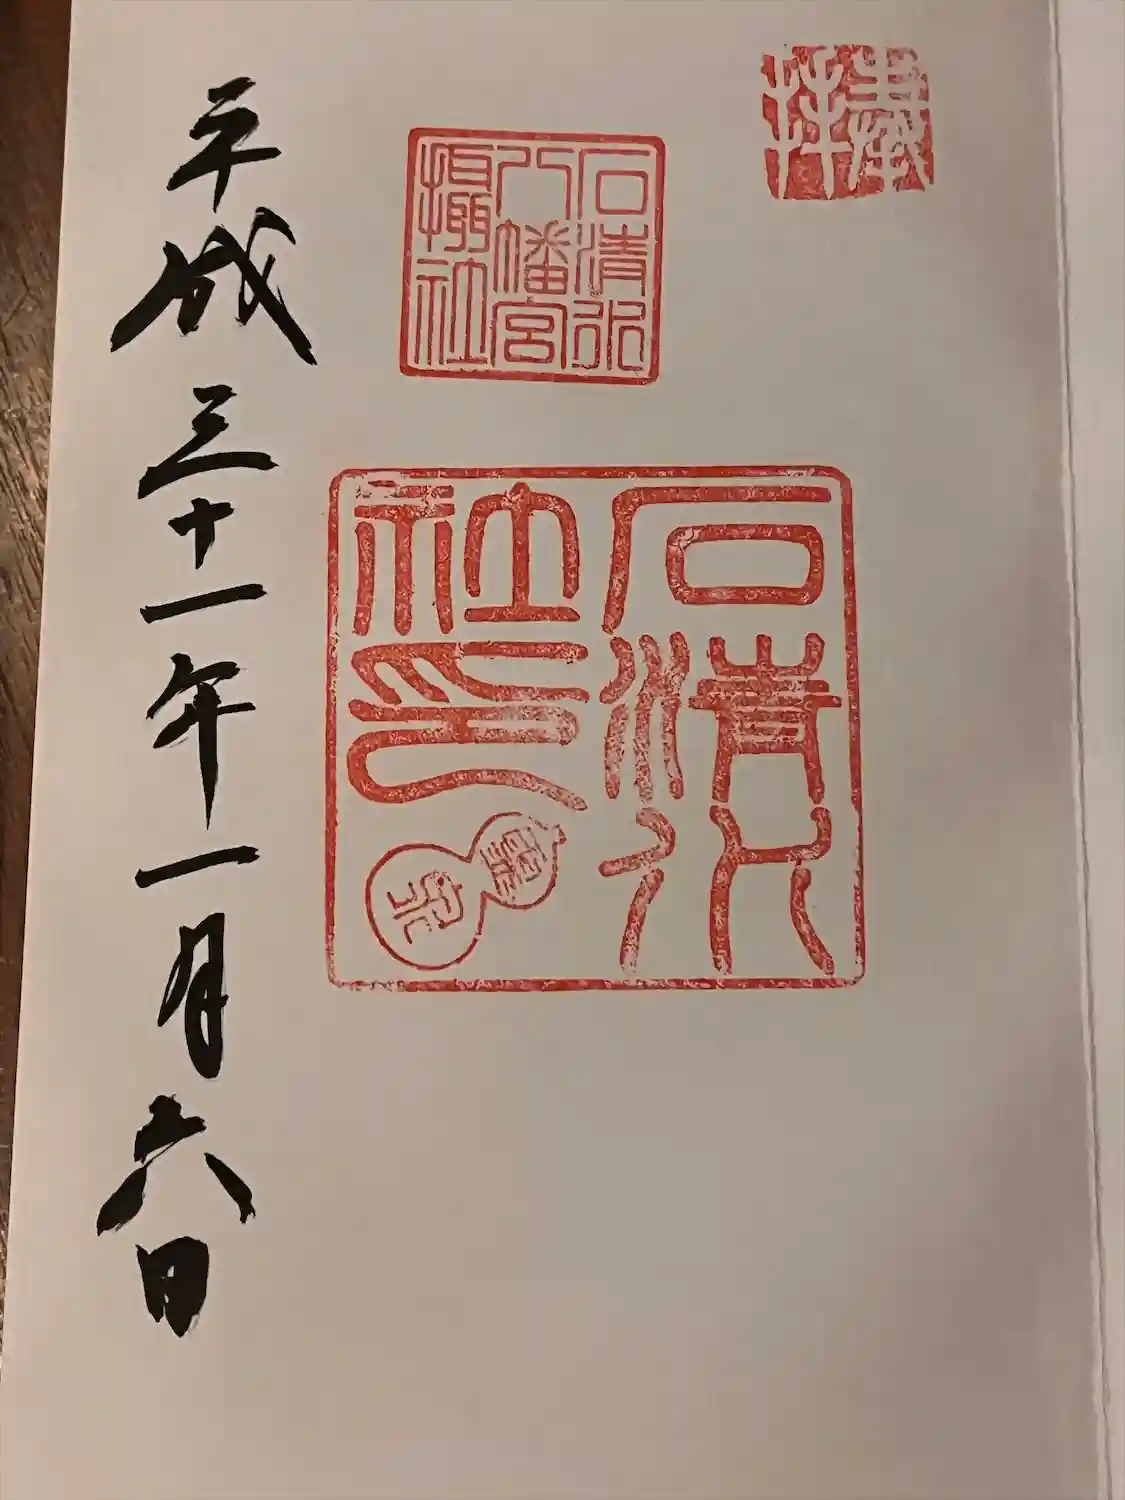 奉拝
石清水
八幡宮
摂社
石清水
社印
霊泉
平成三十一年一月六日